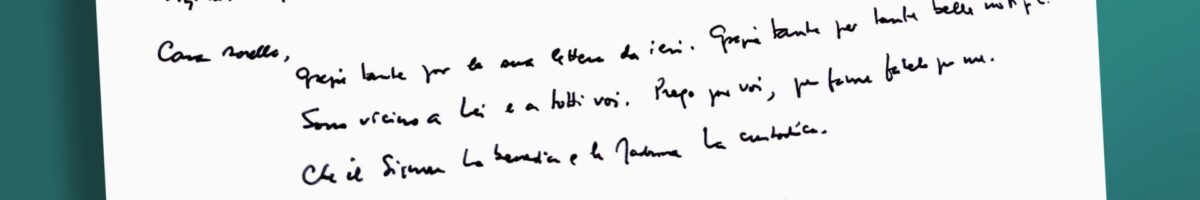 Cara sorella,
Grazie tante per la sua lettera da ieri. Grazie tante per tante belle notizie.
Sono vicino a Lei e a tutti voi. Prego per voi, per favore fatelo per me.
Che il Signore La benedica e la Madonna La custodisca.